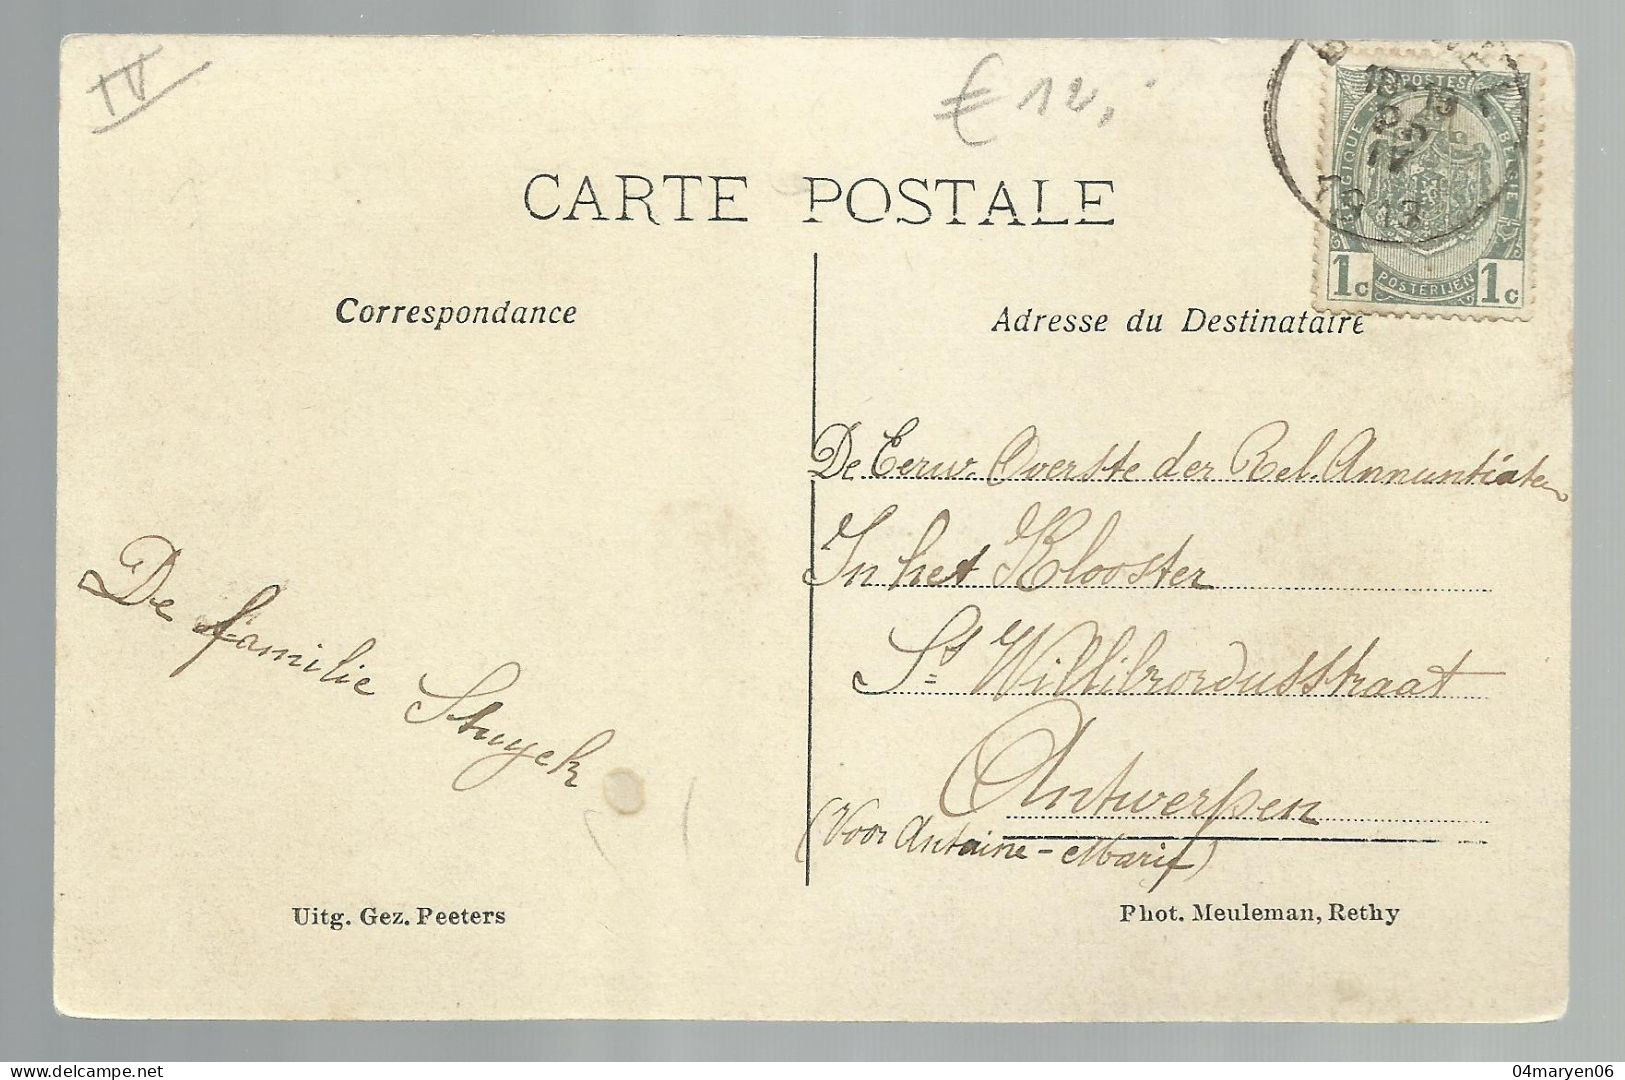 IV
€ 12,-
CARTE POSTALE
POSTES
BELGIQUE
BELGIE
1c
POSTERIJEN
1c
13
Correspondance
Adresse du Destinataire
De Eerw. Overste der Rel. Annuntiaten
In het Klooster
St Willibrordusstraat
Antwerpen
(Voor Antoine-Marie)
De familie Stuyck
Uitg. Gez. Peeters
Phot. Meuleman, Rethy
04maryen06